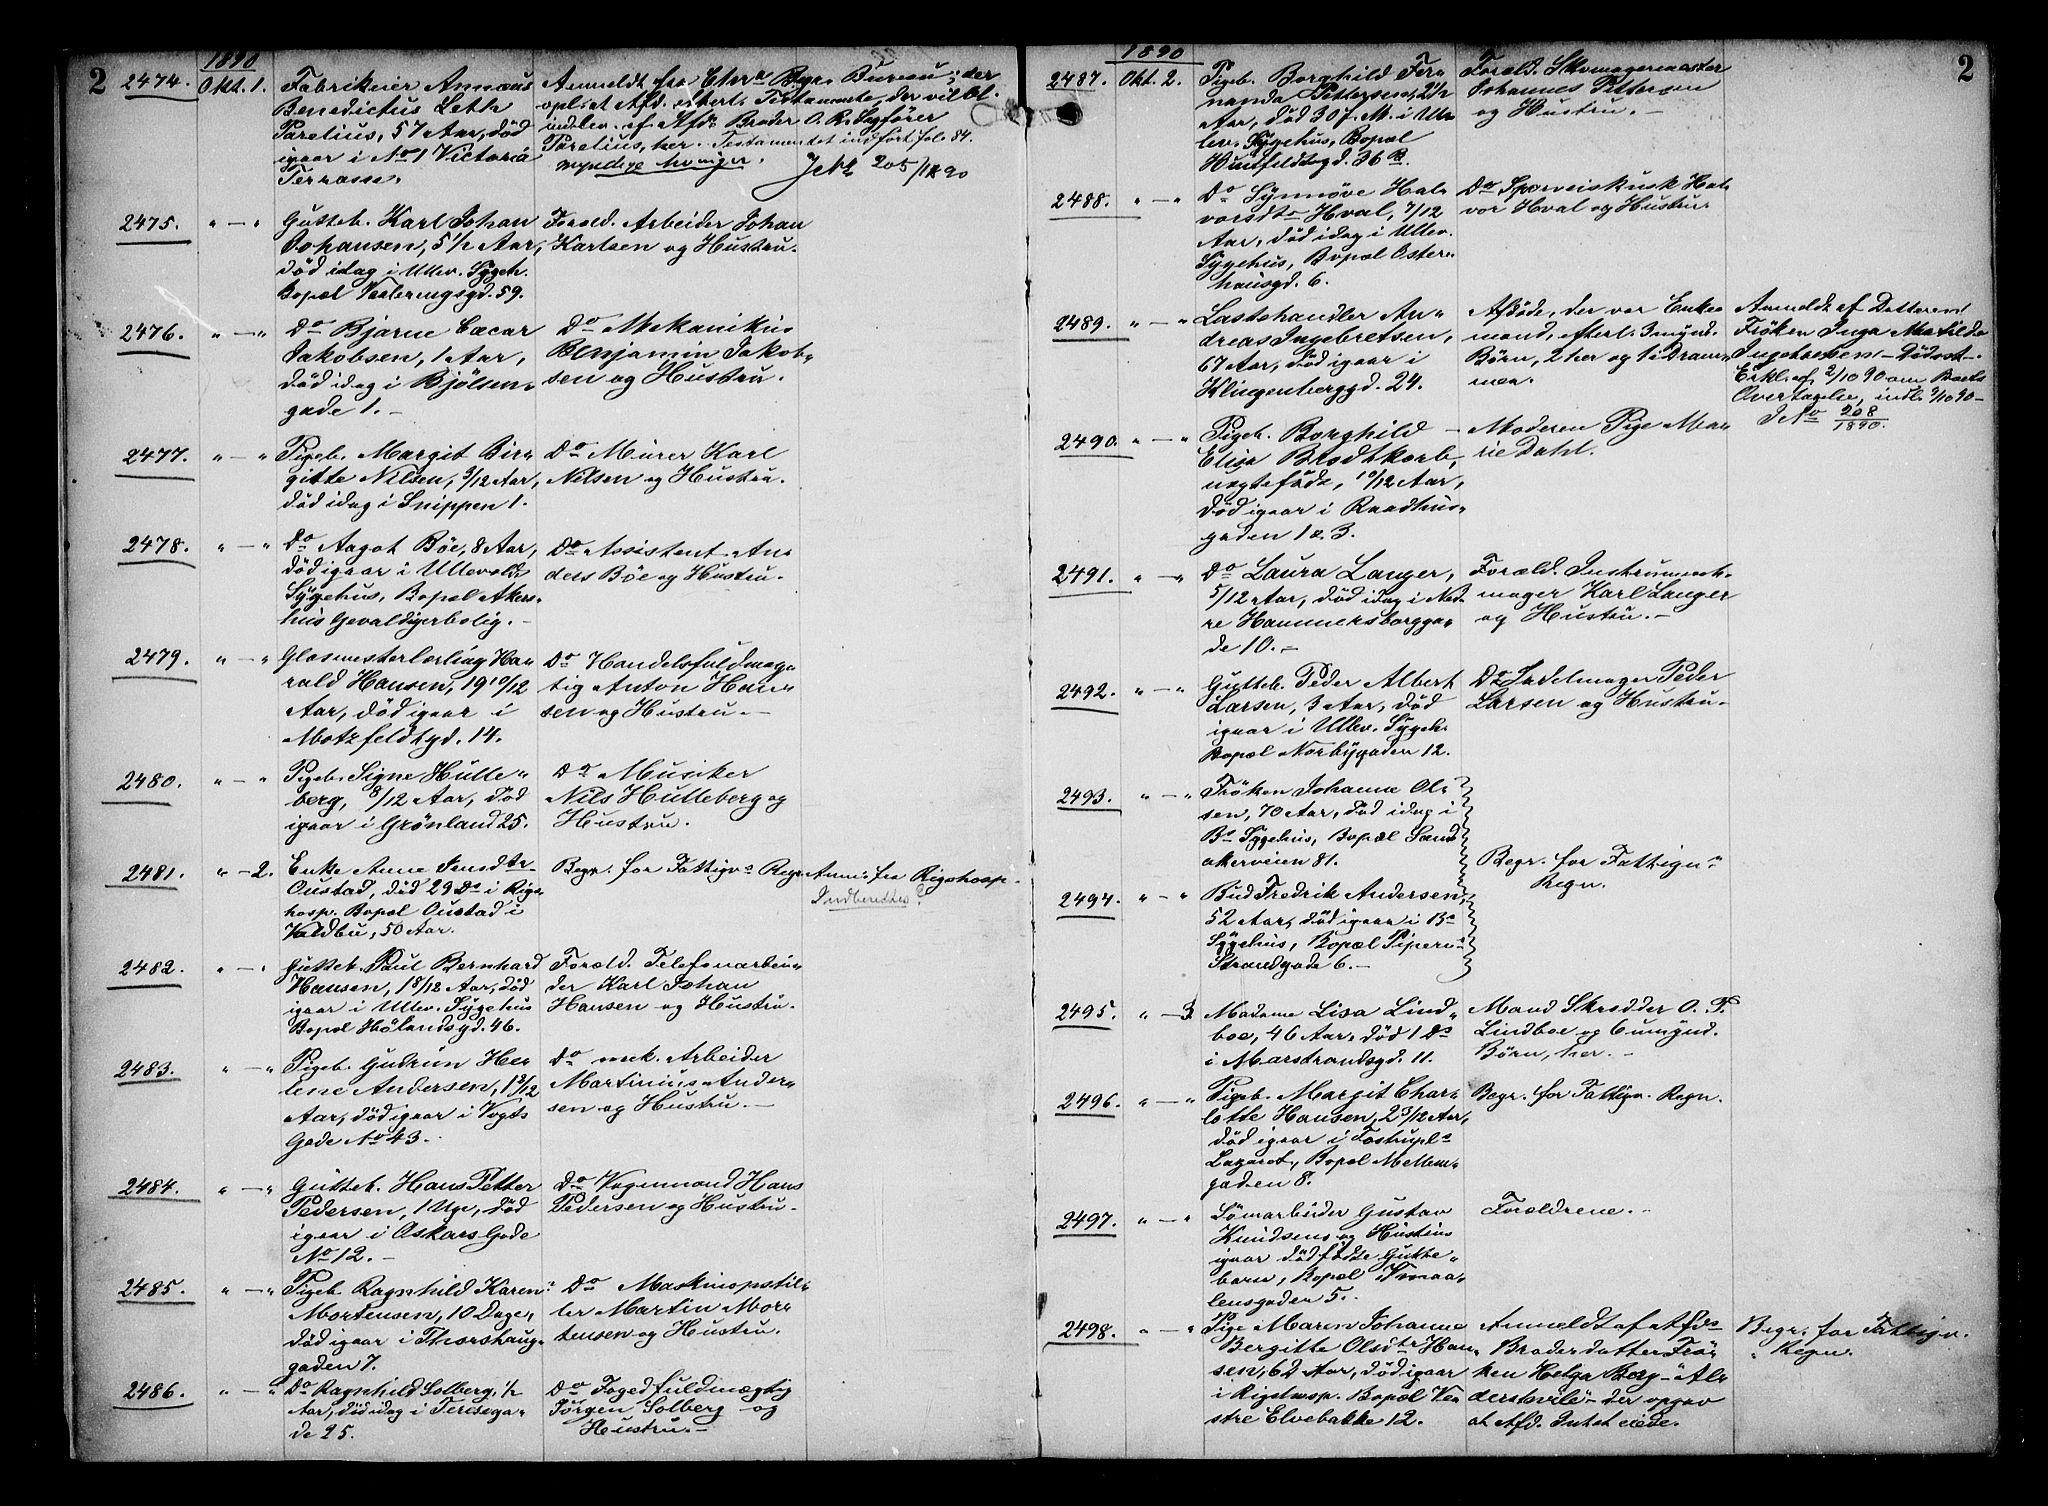 2
1890
2474. Okt. 1. Fabrikeier Annæus
Benedictus Leth
Parelius, 57 Aar, död
igaar i No 1 Victoria
Terrasse.
Anmeldt fra Chra Begr. Bureau; der
opl. at Afd. efterl. Testamente, der vil bl.
indlev. af Afds Broder O. R. Sagförer
Parelius, her. Testamentet indfört fol. 84.
myndige Arvinger.
J No 205/1890
2475. " — " Gutteb. Karl Johan
Johansen, 5 1/2 Aar,
död idag i Ullev. Sygeh.
Bopæl Vaalerengsgd. 59.
Foræld. Arbeider Johan
Karlsen og Hustru.
2476. " — " Do Bjarne Cæcar
Jakobsen, 1 Aar,
död idag i Bjölsen-
gade 1. —
Do Mekanikus
Benjamin Jakob-
sen og Hustru.
2477. " — " Pigeb. Margit Bir-
gitte Nilsen, 3/12 Aar,
död idag i Snippen 1.
Do Murer Karl
Nilsen og Hustru.
2478. " — " Do Aagot Böe, 8 Aar,
död igaar i Ullevolds
Sygehus, Bopæl Akers-
hus Gevaldigerbolig. —
Do Assistent An-
ders Böe og Hustru.
2479. " — " Glasmesterlærling Ha-
rald Hansen, 19 10/12
Aar, död igaar i
Motzfeldtsgd. 14.
Do Handelsfuldmæg-
tig Anton Han-
sen og Hustru. —
2480. " — " Pigeb. Signe Hulle-
berg, 8/12 Aar, död
igaar i Grönland 25.
Do Musiker
Nils Hulleberg og
Hustru.
2481. " — 2. Enke Anne Amdtr
Oustad, död 29 Ds i Rigs-
hosp. Bopæl Oustad i
Valdbu, 50 Aar.
Begr. for Fattigvs Regn.
Anm. fra Rigshosp.
Indberettes?
2482. " — " Gutteb. Paul Bernhard
Hansen, 1 8/12 Aar, död
igaar i Ullev. Sygehus
Bopæl Hölandsgd. 46.
Foræld. Telefonarbei-
der Karl Johan
Hansen og Hustru.
2483. " — " Pigeb. Gudrun He-
lene Andersen, 1 3/12
Aar, död igaar i Vogts
Gade No 43.
Do mek. Arbeider
Martinius Ander-
sen og Hustru. —
2484. " — " Gutteb. Hans Petter
Pedersen, 1 Uge, död
igaar i Oskars Gade
No 12. —
Do Vognmand Hans
Pedersen og Hustru.
2485. " — " Pigeb. Ragnhild Karen
Mortensen, 10 Dage,
död igaar i Thorshaug-
gaden 7.
Do Maskinopstil-
ler Martin Mor-
tensen og Hustru.
2486. " — " Do Ragnhild Solberg, 1/2
Aar, död idag i Teresega-
de 25.
Do Fogedfuldmægtig
Jörgen Solberg og
Hustru. —
2
1890
2487. Okt. 2. Pigeb. Borghild Fer-
nanda Pettersen, 2 1/2
Aar, död 30 f. M. i Ul-
lev. Sygehus, Bopæl
Huitfeldtsgd. 36 B.
Foræld. Skomagermester
Johannes Pettersen
og Hustru. —
2488. " — " Do Synnöve Hal-
vorsdtr Hval, 7/12
Aar, död idag i Ullev.
Sygehus, Bopæl Oster-
hausgd. 6.
Do Sporveiskusk Hal-
vor Hval og Hustru
2489. " — " Lastehandler An-
dreas Ingebretsen,
67 Aar, död igaar i
Klingenberggd. 24.
Afdöde, der var Enke-
mand, efterl. 3 mynd.
Börn, 2 her og 1 i Dram-
men.
Anmeldt af Datteren
Fröken Inga Matilda
Ingebretsen — Dödsat.
Erkl. af 2/10 90 om Boets
Overtagelse, indl. 2/10 90 —
J No 208/1890.
2490. " — " Pigeb. Borghild
Elisa Brodtkorb,
uægteföde, 10/12 Aar,
död igaar i Raadhus-
gaden 1 & 3.
Moderen Pige Ma-
rie Dahl.
2491. " — " Do Laura Langer,
5/12 Aar, död idag i Ned-
re Hammersborgga-
de 10. —
Foræld. Instrument-
mager Karl Langer
og Hustru. —
2492. " — " Gutteb. Peder Albert
Larsen, 3 Aar, död
igaar i Ullev. Sygeh.
Bopæl Norbygaden 12.
Do Sadelmager Peder
Larsen og Hustru.
2493. " — " Fröken Johanne Ol-
sen, 70 Aar, död idag i
Bs Sygehus, Bopæl Sand-
akerveien 81.
2494. " — " Bud Fredrik Andersen,
52 Aar, död igaar i Bs
Sygehus, Bopæl Piperv.
Strandgade 6. —
Begr. for Fattigv.
Regn.
2495. " — 3 Madame Lisa Lind-
boe, 46 Aar, död 1 Ds
i Marstrandsgd. 11.
Mand Skrædder O. P.
Lindboe og 6 umynd.
Börn, her. —
2496. " — " Pigeb. Margit Char-
lotte Hansen, 2 3/12 Aar,
död igaar i Fostrups
Lazaret, Bopæl Mellem-
gaden 8.
Begr. for Fattigv. Regn.
2497. " — " Sömarbeider Gustav
Knudsens og Hustrus
igaar dödfödte Gutte-
barn, Bopæl i Smaa-
lensgaden 5.
Forældrene. —
2498. " — " Pige Maren Johanne
Bergitte Olsdtr Han-
sen, 62 Aar, död igaar
i Rigshosp. Bopæl Ve-
stre Elvebakke 12.
Anmeldt af Afdes
Broderdatter Frö-
ken Helga Berg — Al-
derstvile — der opgav
at Afd. Intet eiede.
Begr. for Fattigv.
Regn.